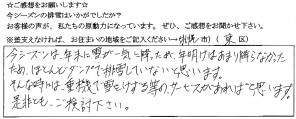 ☆ご感想をお願いします☆
今シーズンの排雪はいかがでしたか?
お客様の声が、私たちの原動力になっています。ぜひ、ご感想をお聞かせ下さい。
※差支えなければ、お住まいの地域をご記入ください→(札幌 市)(東 区)
今シーズンは、年末に雪が一気に降ったが、年明けはあまり降らなかった
ため、ほとんどダンプで排雪していないと思います。
そんな時は、重機で雪をけずる等のサービスがあればと思います。
是非とも、ご検討下さい。